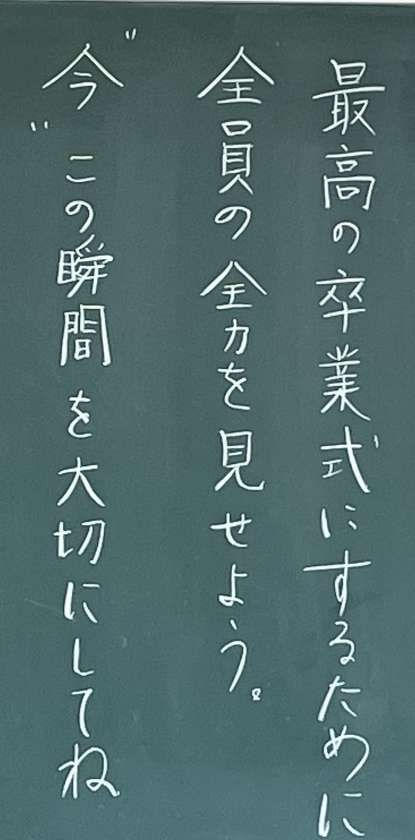 最高の卒業式にするために
全員の全力を見せよう。
"今"この瞬間を大切にしてね